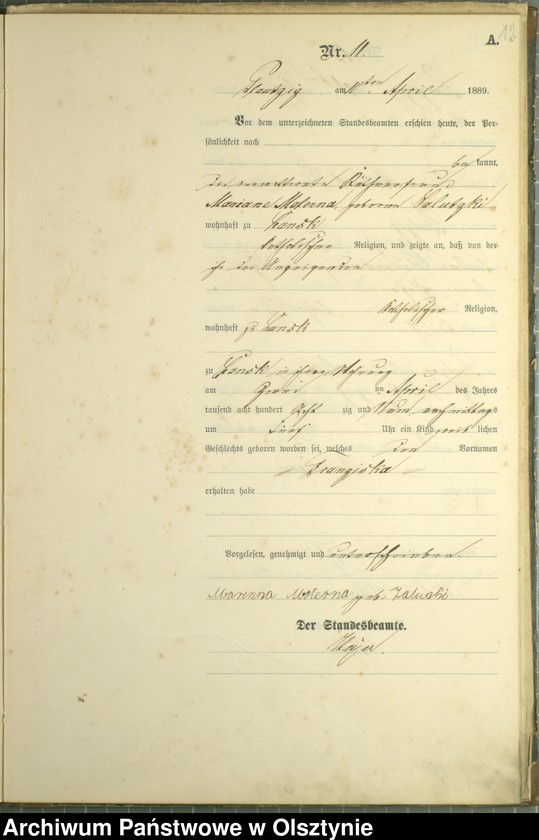 A. 12
Nr. 11.
Plautzig am 10ten April 1889.
Vor dem unterzeichneten Standesbeamten erschien heute, der Per-
sönlichkeit nach
bekannt,
die
Mariane Materna, geborene Salutzki
wohnhaft zu Lansk
katholischer Religion, und zeigte an, daß von der
ihr der Anzeigenden
katholischer Religion,
wohnhaft zu Lansk
zu Lansk in ihrer Wohnung
am zwei ten April des Jahres
tausend acht hundert acht zig und neun nachmittags
um fünf Uhr ein Kind weib lichen
Geschlechts geboren worden sei, welches den Vornamen
Franziska
erhalten habe
Vorgelesen, genehmigt und unterschrieben.
Marianna Materna geb. Zalucki
Der Standesbeamte.
Archiwum Państwowe w Olsztynie